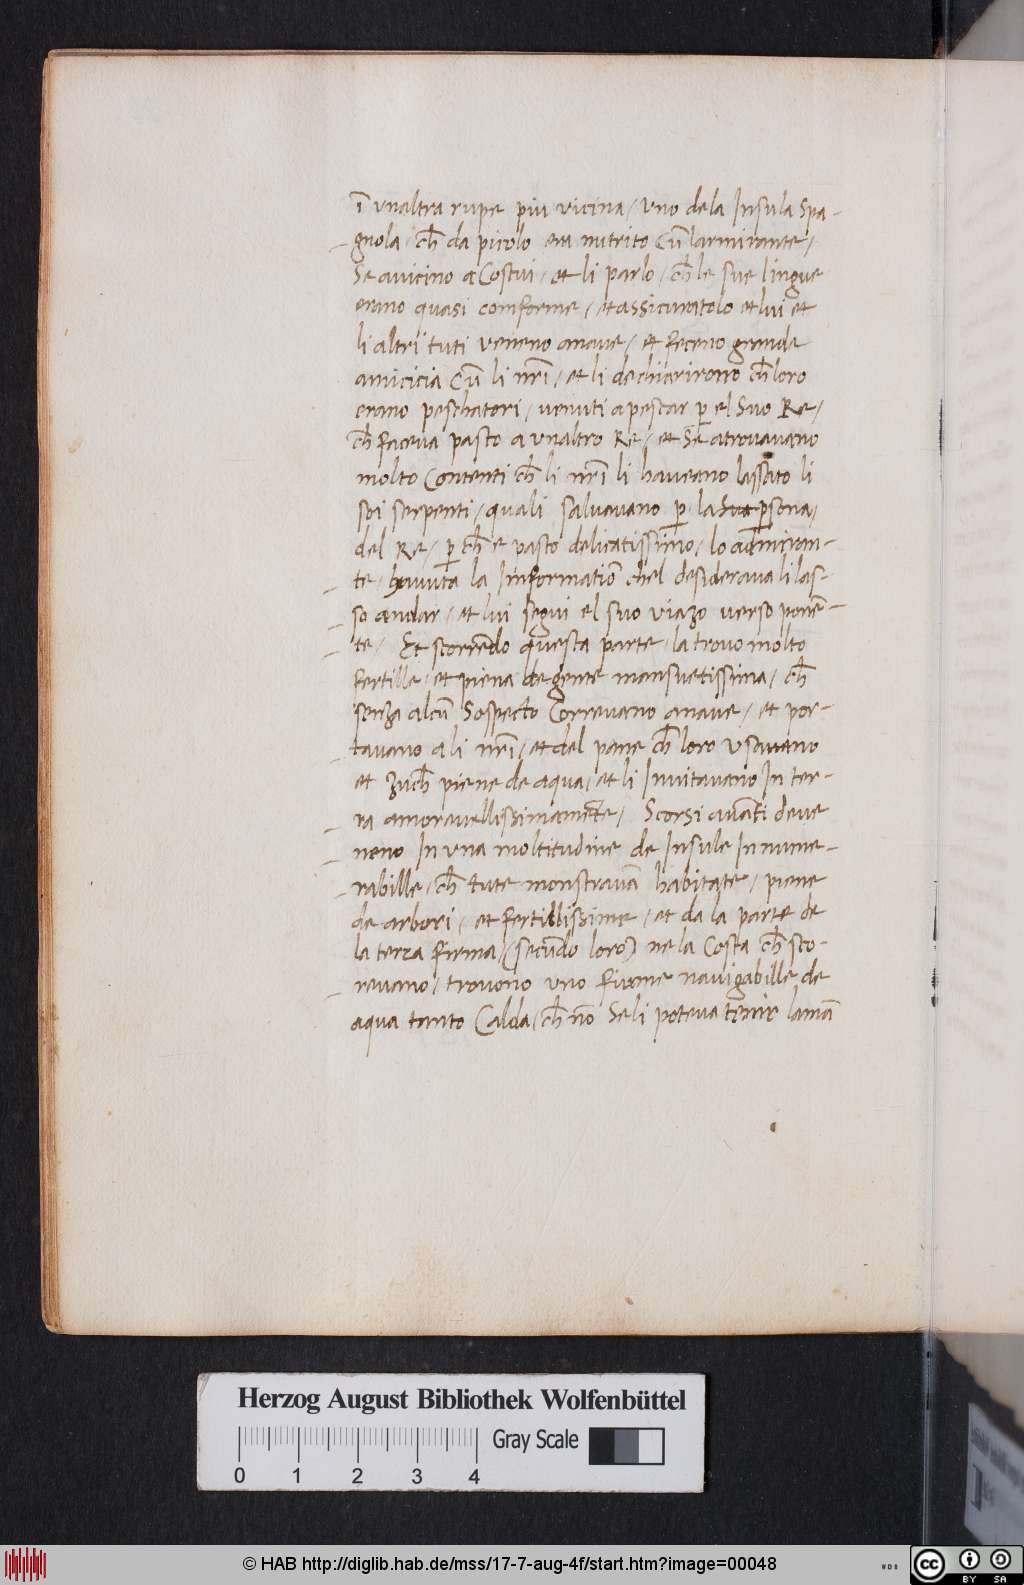 ī vnaltra rupe piu vicina / vno dela Insula Spa-
gnola / ch̄ da picolo era nutrito Cū larmirante /
Se auicino a Costui / et li parlo / ch̄ le sue lingue
erano quasi comforme / et assicuratolo et lui et
li altri tuti veneno anaue / et feceno grande
amicicia Cū li nr̄i / et li dechiarirono ch̄ loro
erano peschatori / venuti a pescar p̱ el Suo Re /
ch̄ faceua pasto a vnaltro Re / et Se atrouauano
molto Contenti ch̄ li nr̄i li haueano lassato li
soi serpenti / quali saluauano p̱ la Sua p̱sona /
del Re / p̱ ch̄ e pasto delicatissimo / lo admiran-
te / hauuta la Informatiō chel desideraua li las-
so andar / et lui segui el suo viazo verso ponē-
te / Et scorrēdo questa parte / la trouo molto
fertille / et piena de gente mansuetissima / ch̄
senza alcū Sospecto Correuano anaue / et por-
tauano a li nr̄i / et del pane ch̄ loro vsauano
et zuch̄ piene de aqua / et li Inuitauano In ter-
ra amoreuellissimamēte / Scorsi auāti deue
neno In vna moltitudine de Insule Innume-
rabille / ch̄ tute monstrauā habitate / piene
de arbori / et fertillissime / et da la parte de
la terra firma / (secūdo loro) ne la Costa ch̄ sco-
reuano / trouono vno fiume nauigabille de
aqua tanto Calda / ch̄ nō Se li poteua tenir lamā
Herzog August Bibliothek Wolfenbüttel
Gray Scale
0 1 2 3 4
© HAB http://diglib.hab.de/mss/17-7-aug-4f/start.htm?image=00048
WDB
cc BY SA